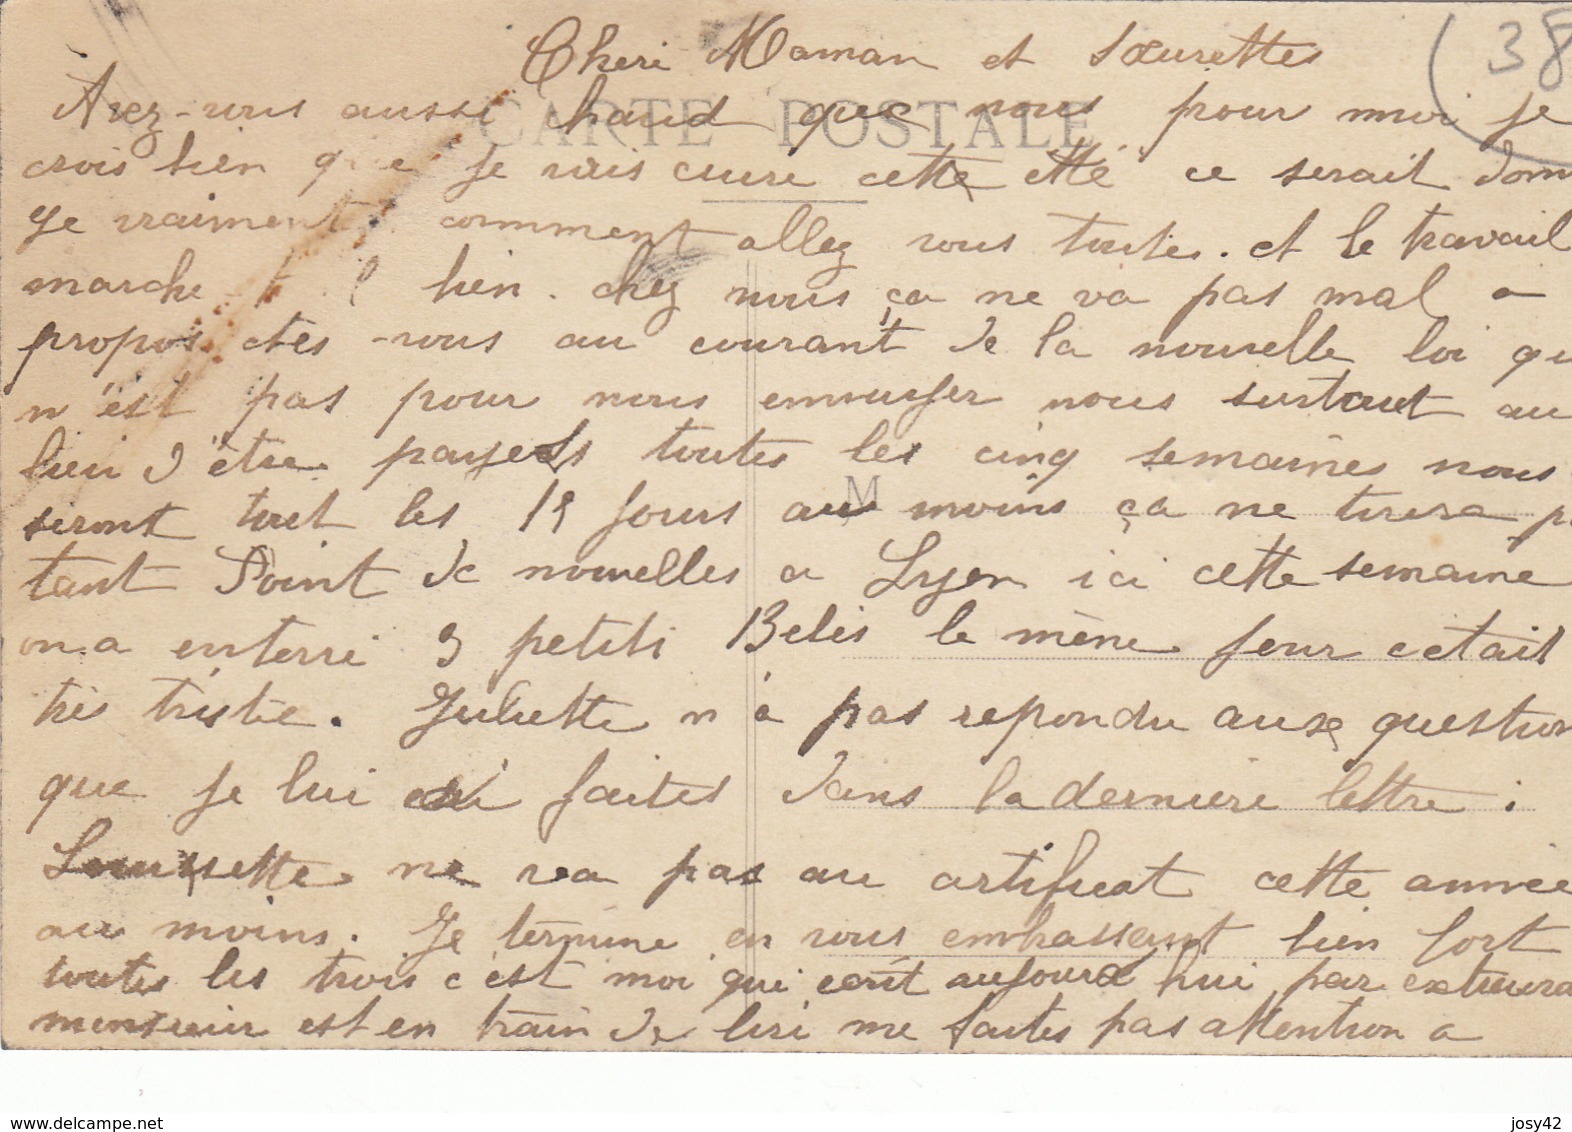 Cheri Maman et Sœurettes
38
CARTE POSTALE
Avez-vous aussi chaud que nous pour moi je
crois bien que je vais cuire cette etté ce serait dom
ge vraiment comment allez vous toutes. et le travail
marche t il bien. chez nous ça ne va pas mal a
propos etes-vous au courant de la nouvelle loi qui
n'est pas pour nous ennuyer nous surtout au
lieu d'être payeés toutes les cinq semaines nous
seront tout les 15 jours au moins ça ne tirera p
M
tant Point de nouvelles a Lyon ici cette semaine
on a enterré 3 petits Bébés le mène jour cetait
très tristre. Juliette n'a pas repondu aux question
que je lui ai faites dans la derniere lettre.
ne va pas au certificat cette année
au moins. Je termine en vous embrassant bien fort
toutes les trois c'est moi qui ecrit aujourd'hui par extraord
monsieur est en train de liri me faites pas attention a
www.delcampe.net
josy42